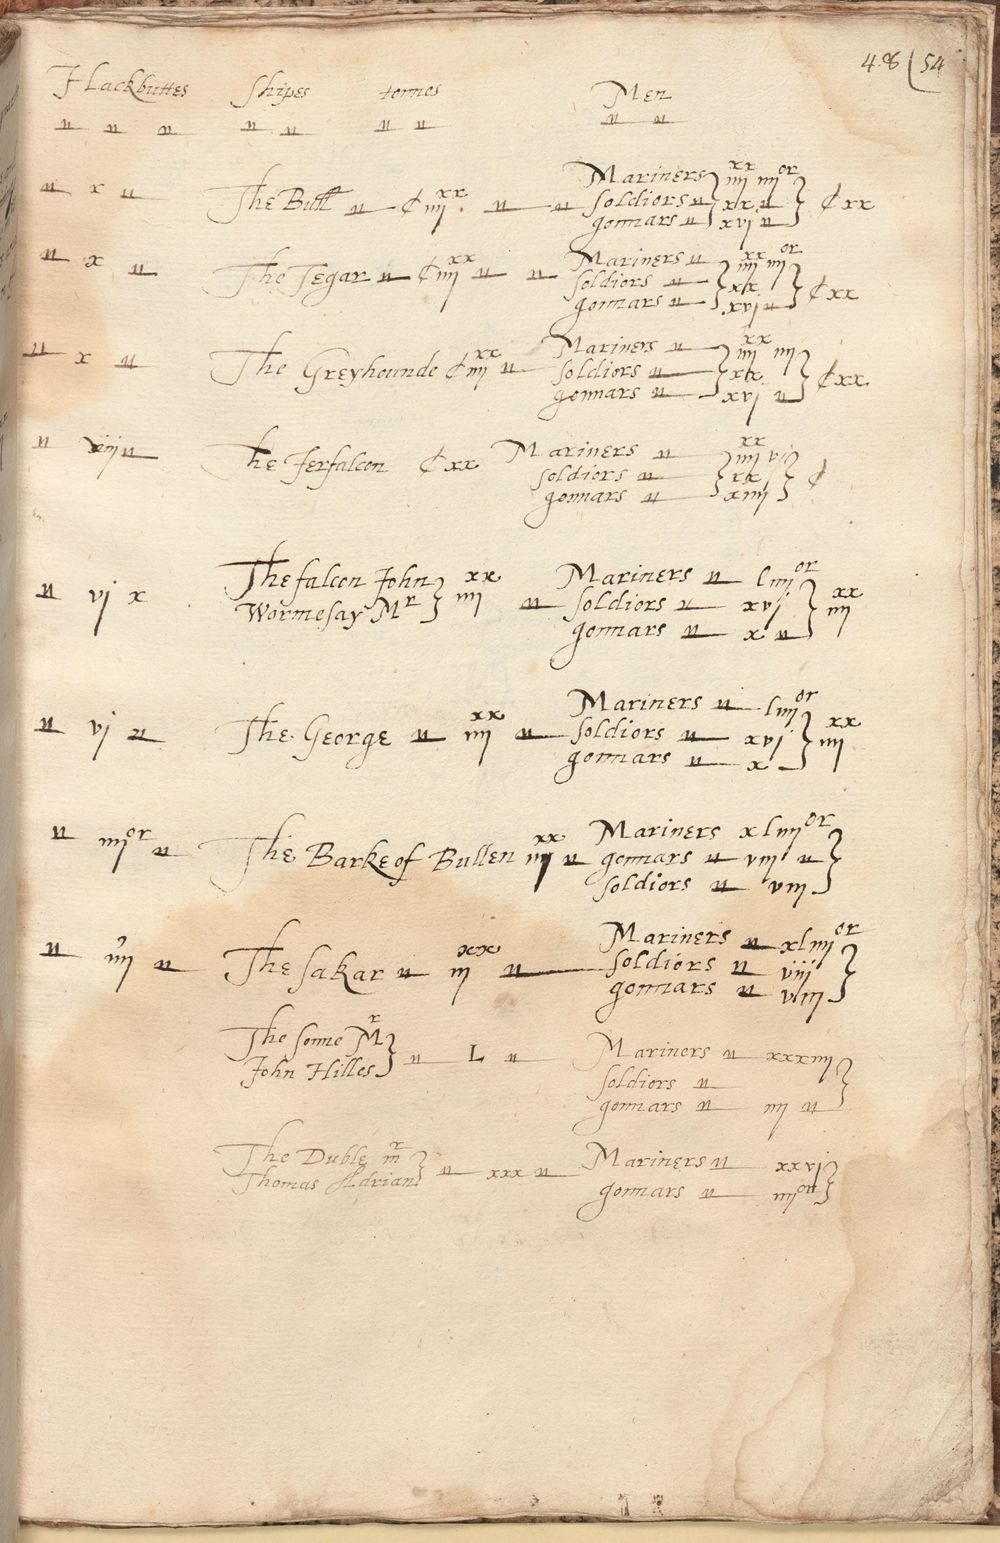 48 (54
Hackbuttes Shipes tonnes Men
" " " " " " " " "
" x " The Bull " ₵ iiij^xx " " Mariners iiij^xx iiij^or
soldiors " xx " ₵ xx
gonnars " xvj "
" x " The Tegar " ₵ iiij^xx " " Mariners " iiij^xx iiij^or
soldiors " xx ₵ xx
gonnars " xvj "
" x " The Greyhounde ₵ iiij^xx " Mariners " iiij^xx iiij
soldiors " xx ₵ xx
gonnars " xvj "
" " The Jerfalcon ₵ xx Mariners " vj
soldiors " xx ₵
gonnars " xiiij
" vj x The falcon John iiij^xx " Mariners " liiij^or
Wormesay M^r soldiors " xvj iiij^xx
gonnars " x "
" vj " The George " iiij^xx " Mariners " liiij^or
soldiors " xvj iiij^xx
gonnars " x
" iiij^or " The Barke of Bullen iiij^xx " Mariners xliiij^or
gonnars " viij "
soldiors " viij
" iiij " The sakar " iij^xx " Mariners " xliiij^or
soldiors " viij
gonnars " viij
The sonne M^r
John Hilles " L " Mariners " xxxiiij
soldiors "
gonnars " iiij "
The Duble m^r " xxx " Mariners " xxvj
Thomas Adrian gonnars " iiij^or